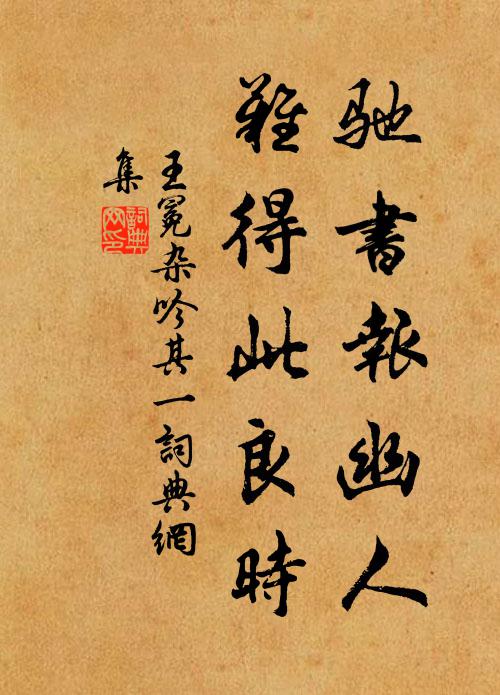 馳書報幽人
難得此良時
王冕杂吟其一詞典網
集
詞典网印